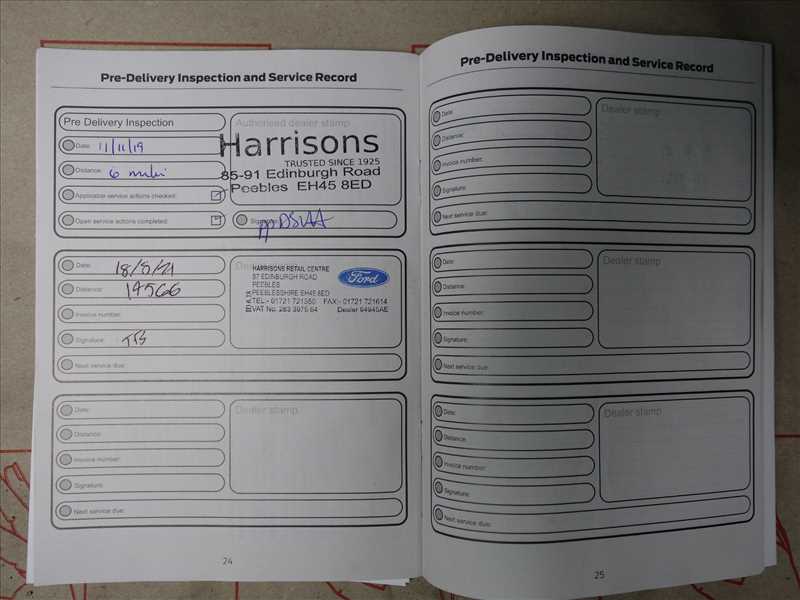 Pre-Delivery Inspection and Service Record
Pre Delivery Inspection
Authorised dealer stamp
Date: 11/11/19
Harrisons
TRUSTED SINCE 1925
Distance: 6 miles
85-91 Edinburgh Road
Peebles EH45 8ED
Applicable service actions checked:
Open service actions completed:
Signature:
Date: 18/5/21
Dealer stamp
HARRISONS RETAIL CENTRE
Ford
87 EDINBURGH ROAD
PEEBLES
PEEBLESSHIRE EH45 8ED
TEL:- 01721 721350 FAX:- 01721 721614
VAT No. 263 3975 64 Dealer 94945AE
Distance: 19566
Invoice number:
Signature: TB
Next service due:
Date:
Dealer stamp
Distance:
Invoice number:
Signature:
Next service due:
24
Pre-Delivery Inspection and Service Record
Date:
Dealer stamp
Distance:
Invoice number:
Signature:
Next service due:
Date:
Dealer stamp
Distance:
Invoice number:
Signature:
Next service due:
Date:
Dealer stamp
Distance:
Invoice number:
Signature:
Next service due:
25